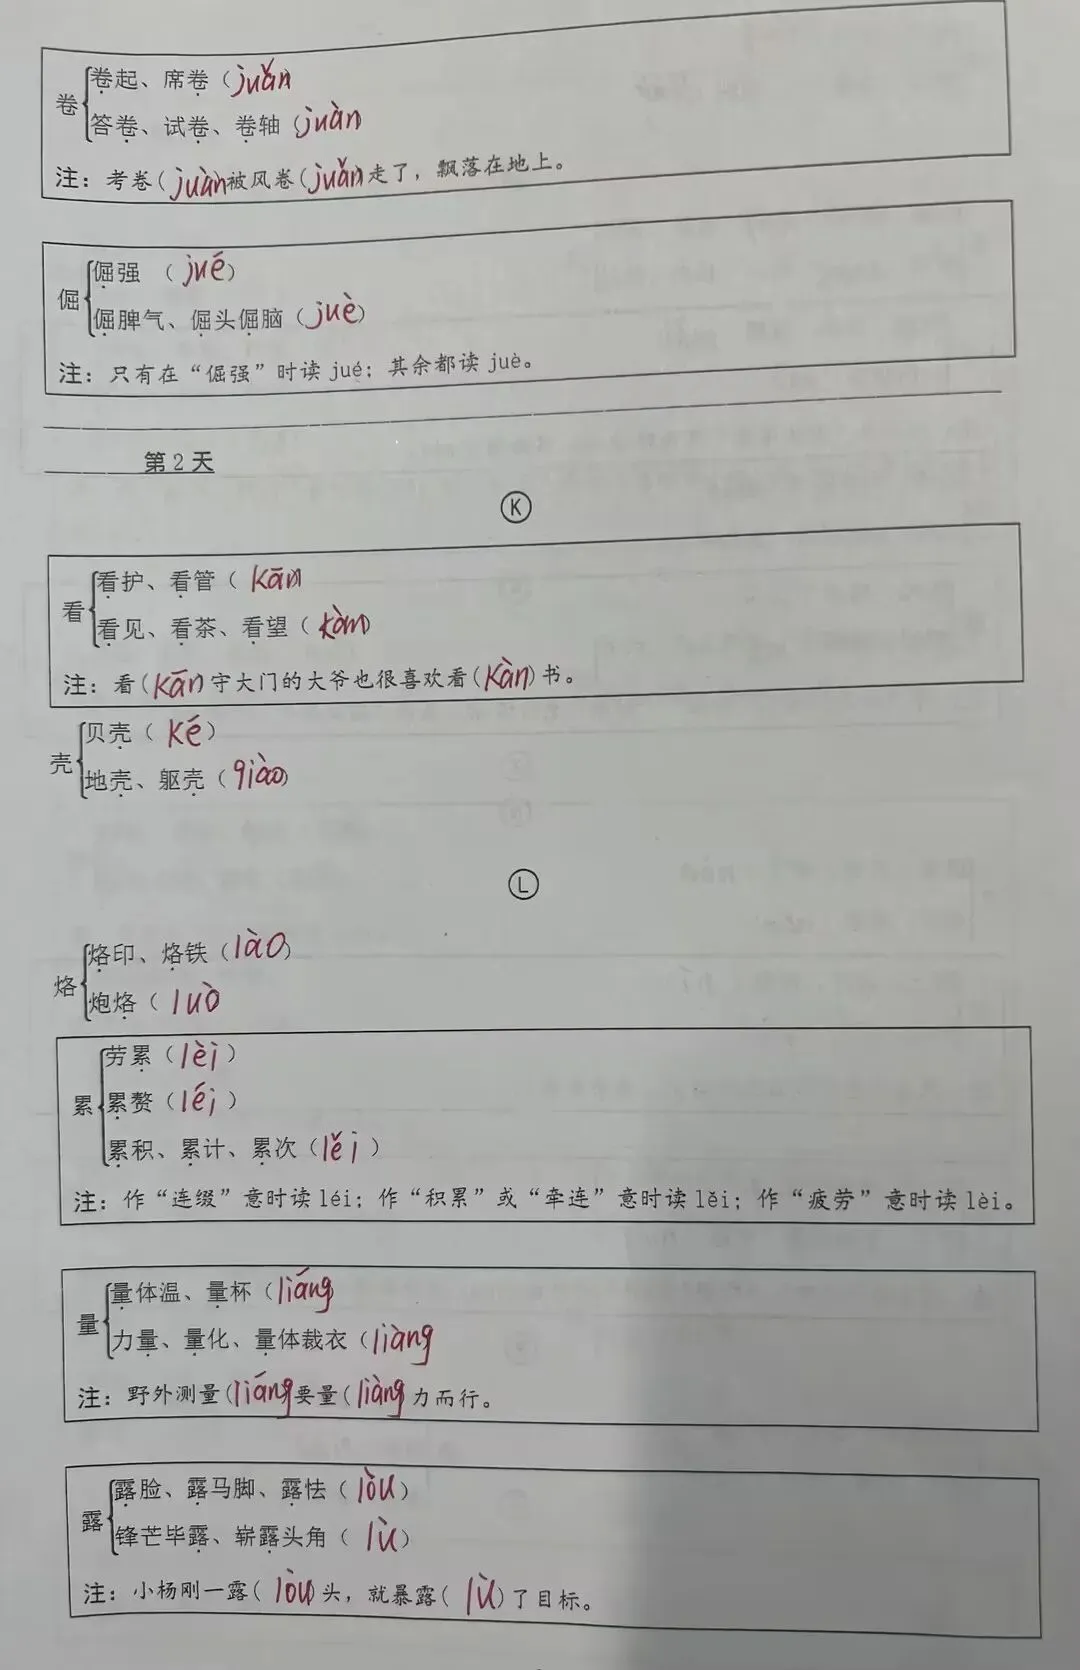 卷
卷起、席卷（juǎn
答卷、试卷、卷轴（juàn）
注：考卷（juàn被风卷（juǎn）走了，飘落在地上。
倔
倔强 （jué）
倔脾气、倔头倔脑（juè）
注：只有在“倔强”时读 jué；其余都读 juè。
第 2 天
K
看
看护、看管（ kān
看见、看茶、看望（kàn）
注：看（kān）守大门的大爷也很喜欢看（kàn）书。
壳
贝壳（ ké ）
地壳、躯壳（qiào）
L
烙
烙印、烙铁（lào）
炮烙（ luò
累
劳累（lèi ）
累赘（léi ）
累积、累计、累次（lěi ）
注：作“连缀”意时读 léi；作“积累”或“牵连”意时读 lěi；作“疲劳”意时读 lèi。
量
量体温、量杯（liáng
力量、量化、量体裁衣（liàng
注：野外测量（liáng要量（liàng力而行。
露
露脸、露马脚、露怯（lòu）
锋芒毕露、崭露头角（ lù）
注：小杨刚一露（ lòu）头，就暴露（ lù）了目标。